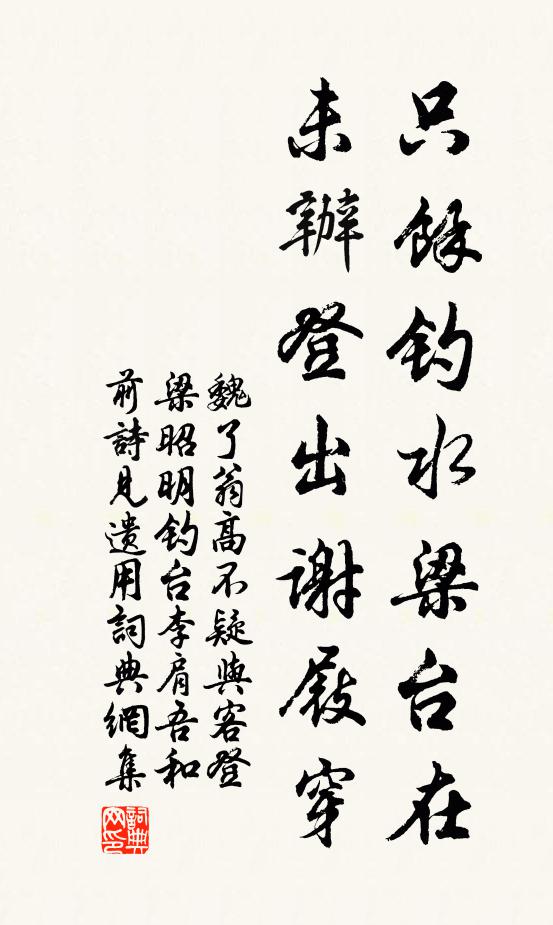 只餘钓水梁台在
未辦登出謝屐穿
魏了翁高不疑與客登
梁昭明钓台李肩吾和
前詩見遺用詞典網集
詞典网印